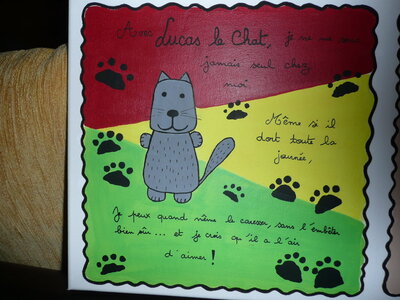 Avec Lucas le Chat, je ne me sens
jamais seul chez
moi
Même si il
dort toute la
journée,
Je peux quand même le caresser, sans l'embêter
bien sûr... et je crois qu'il a l'air
d'aimer!